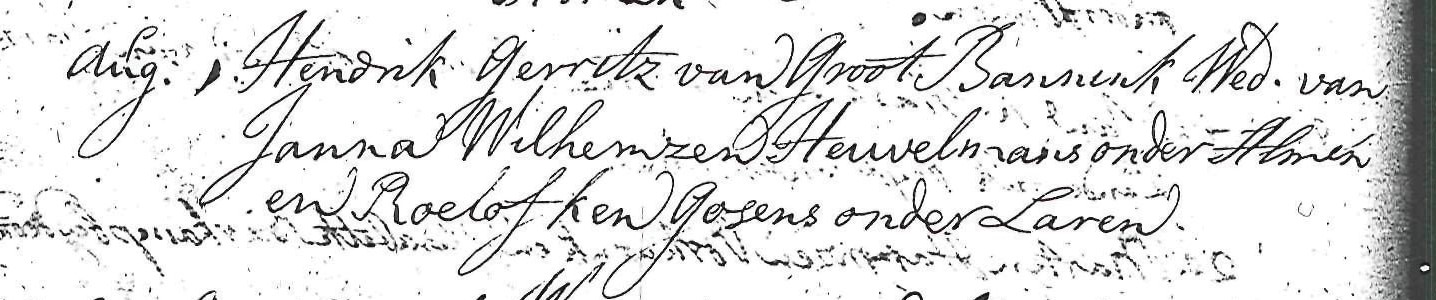 Aug. 1. Hendrik Gerritz van Groot Bannink Wed. van
Janna Wilhemzen Heuvelmans onder Almen
en Roelofken Gosens onder Laren.